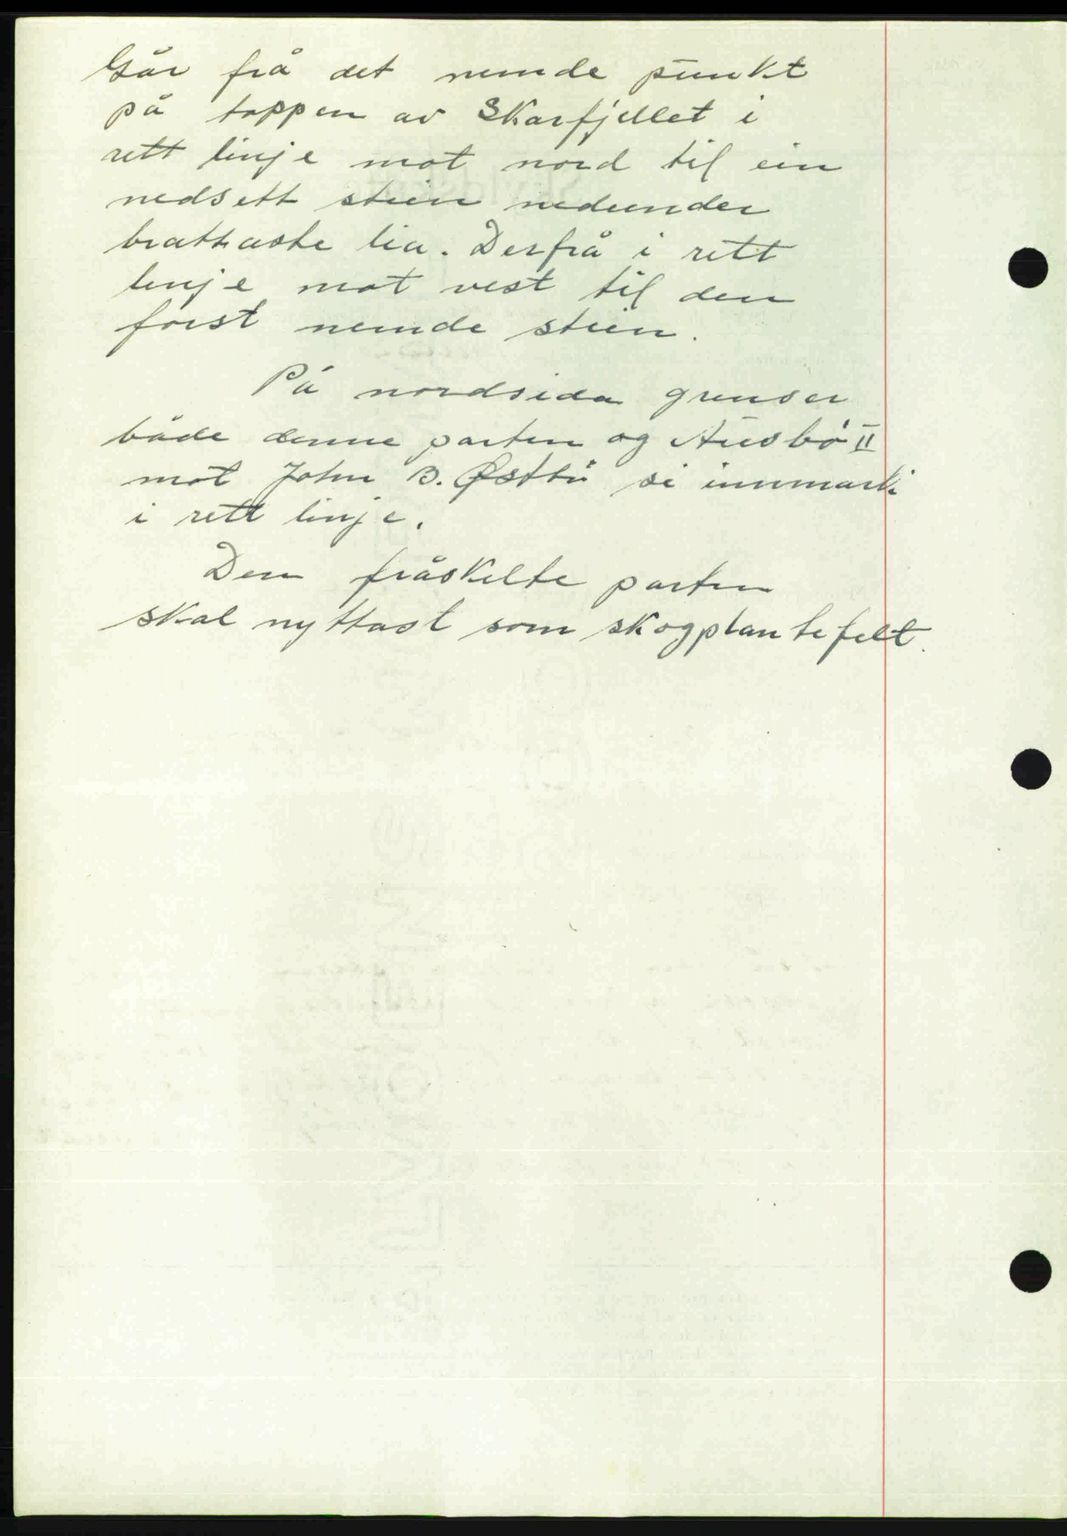 Går frå det nemde punkt
på toppen av Skarfjellet i
rett linje mot nord til ein
nedsett stein nedunder
brattaste lia. Derfrå i rett
linje mot vest til den
først nemde stein.
På nordsida grenser
både denne parten og Ausbø II
mot John B. Østbø si innmark
i rett linje.
Den fråskelte parten
skal nyttast som skogplantefelt.